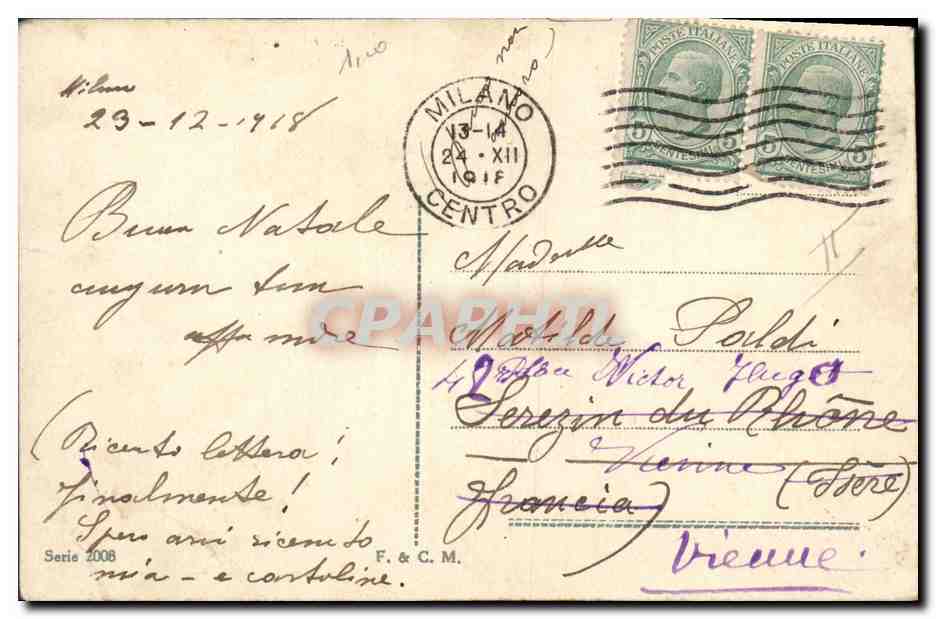 Milano
23-12-1918
Buon Natale
auguri
(Ricevuto lettera!
Finalmente!
Spero avrai ricevuto
mia - e cartoline.
Serie 2008
F. & C. M.
1,20
non
MILANO
13-14
24·XII
1918
CENTRO
POSTE ITALIANE
5 CENTESIMI 5
POSTE ITALIANE
5 CENTESIMI 5
Madselle
Matilde Paldi
42 Place Victor Hugo
Serezin du Rhône
Vienne (Isère)
(Francia)
Vienne.
CPARHTI